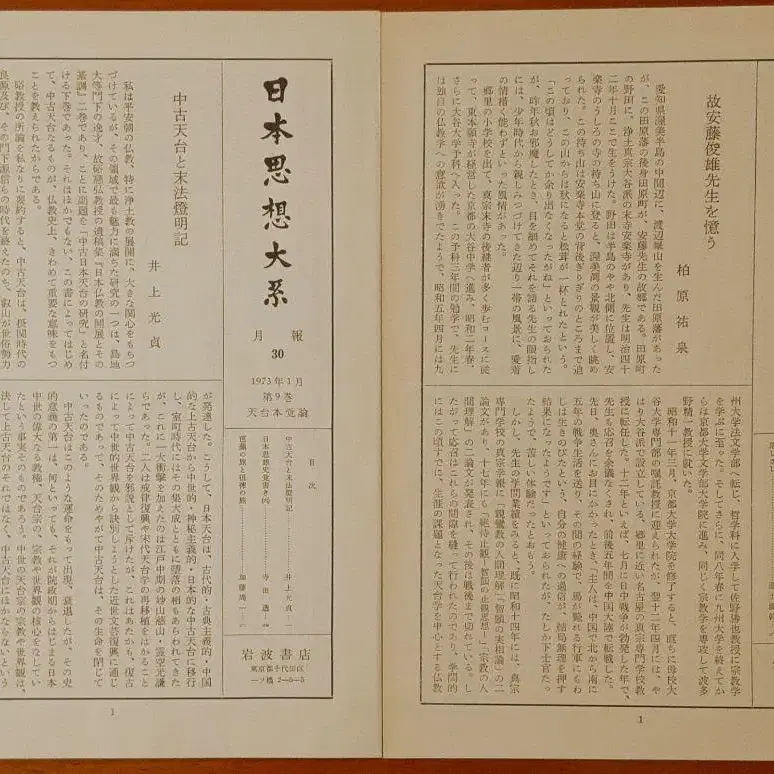 日本思想大系
月報
30
1973年1月
第9巻
天台本覚論
目次
中古天台と末法燈明記
井上光貞
日本思想史覚書き
寺田透
芭蕉の旅と祖禅の旅
加藤
岩波書店
東京都千代田区
一ツ橋2-5-5
中古天台と末法燈明記
井上光貞
私は平安朝の仏教、特に浄土教の展開に、大きな関心をもちつ
づけているが、その領域で最も魅力に満ちた研究の一つは、島地
大等門下の逸才、故硲慈弘教授の遺稿集『日本仏教の開展とその
基調』二巻であり、ことに副題を「中古日本天台の研究」と名付
ける下巻であった。それはほかでもない、この書によってはじめ
て、中古天台なるものが、仏教史上、きわめて重要な意味をもつ
ことを教えられたからである。
硲教授の所論を私なりに要約すると、中古天台は、摂関時代の
良源及び、その門下源信らの時代を終えたのち、叡山が世俗勢力
が発達した。こうして、日本天台は、古代的・古典主義的・中国
的な上古天台から中世的・神秘主義的・日本的な中古天台に移行
し、室町時代にはその集大成とともに堕落の相もあらわれてきた
が、これに一大衝撃を加えたのは江戸中期の妙立慈山・霊空光謙
らであった。二人は戒律復興や宋代天台学の再移植をはかること
によって中古天台を邪説として斥けたが、これはあたかも、復古
によって中世的世界観から訣別しようとした近世文芸復興に通じ
るものであって、そのためやがて中古天台は、その生命を閉じて
いったのである。
中古天台はこのような運命をもって出現、衰退したが、その史
的意義の第一は、何といっても、それが院政期からはじまる日本
中世の偉大なる教権、天台宗の、宗教や世界観の核心をなしてい
たという事実そのものであろう。中世の天台宗の宗教や世界観は、
決して上古天台のそれではなく、中古天台にほかならないという
1
故安藤俊雄先生を憶う
柏原祐泉
愛知県渥美半島の中間辺に、渡辺崋山を生んだ田原藩があった
が、この田原藩の後身田原町が、安藤先生の故郷である。田原町
の野田に、浄土真宗大谷派の末寺安楽寺があり、先生は明治四十
二年十月ここで生をうけた。野田は半島のやや北側に位置し、安
楽寺のうしろの寺の持ち山に登ると、渥美湾の景観が美しく眺め
られた。この持ち山は安楽寺本堂の背後ぎりぎりのところまで迫
っており、この山からは秋になると松茸が一杯とれたという。
「この頃はどうしてか余り出なくなったがね」といっておられた
が、昨年秋お邪魔したとき、目を細めてそれを語る先生の顔指し
には、少年時代から親しみつづけてきた辺り一帯の風景に、愛着
の情措く能わずといった風情があった。
郷里の小学校を出て、真宗末寺の後継者が多く歩むコースに従
って、東本願寺が経営した京都の大谷中学へ進み、昭和二年春、
さらに大谷大学予科へ入った。この予科三年間の勉学で、先生に
は独自の仏教学への意欲が湧きでたようで、昭和五年四月には九
州大学法文学部へ転じ、哲学科に入学して佐野勝也教授に宗教学
を学ぶに至った。そしてさらに、同八年春に九州大学を終えてか
らは京都大学文学部大学院に進み、同じく宗教学を専攻して波多
野精一教授に就いた。
昭和十一年三月、京都大学大学院を修了すると、直ちに母校大
谷大学専門部の嘱託教授に迎えられたが、翌十二年四月には、や
はり大谷派で設立している、郷里に近い名古屋の真宗専門学校教
授に転任した。十二年といえば、七月に日中戦争が勃発した年で、
先生も応召を余儀なくされ、前後五年間を中国大陸で転戦した。
先日、奥さんにお目にかかったとき、「主人は、中国で北から南に
五年の戦争生活を送り、その間の経験で、馬が斃れる行軍にもわ
しは生きのびたという、自分の健康への過信が、結局無理を押す
結果になったようです」といっておられたが、たしか下士官だっ
たようで、苦しい体験だったとおもう。
しかし、先生の学問業績をみると、既に昭和十四年には、真宗
専門学校の真宗学報に「親鸞教の人間理解」「智顗の実相論」の二
論文があり、十七年にも「絶待止観―智顗の止観思想」「宗教の人
間理解」の二論文が発表され、その後は戦後まで切れている。し
たがって応召はこれらの間隙を縫って行われたのであり、学問的
にはこの頃すでに、生涯の課題となった天台学を中心とする仏教
1